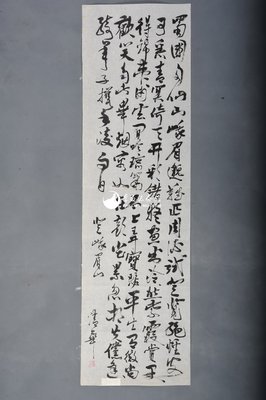 蜀國多仙山峨眉邈難匹周流試登覽絕怪安
可悉青冥倚天開彩錯疑畫出泠然紫霞賞果
得錦囊術雲間吟瓊簫石上弄寶瑟平生有微尚
歡笑自此畢煙容如在顏塵累忽相失儻逢
騎羊子攜手凌白日
登峨眉山